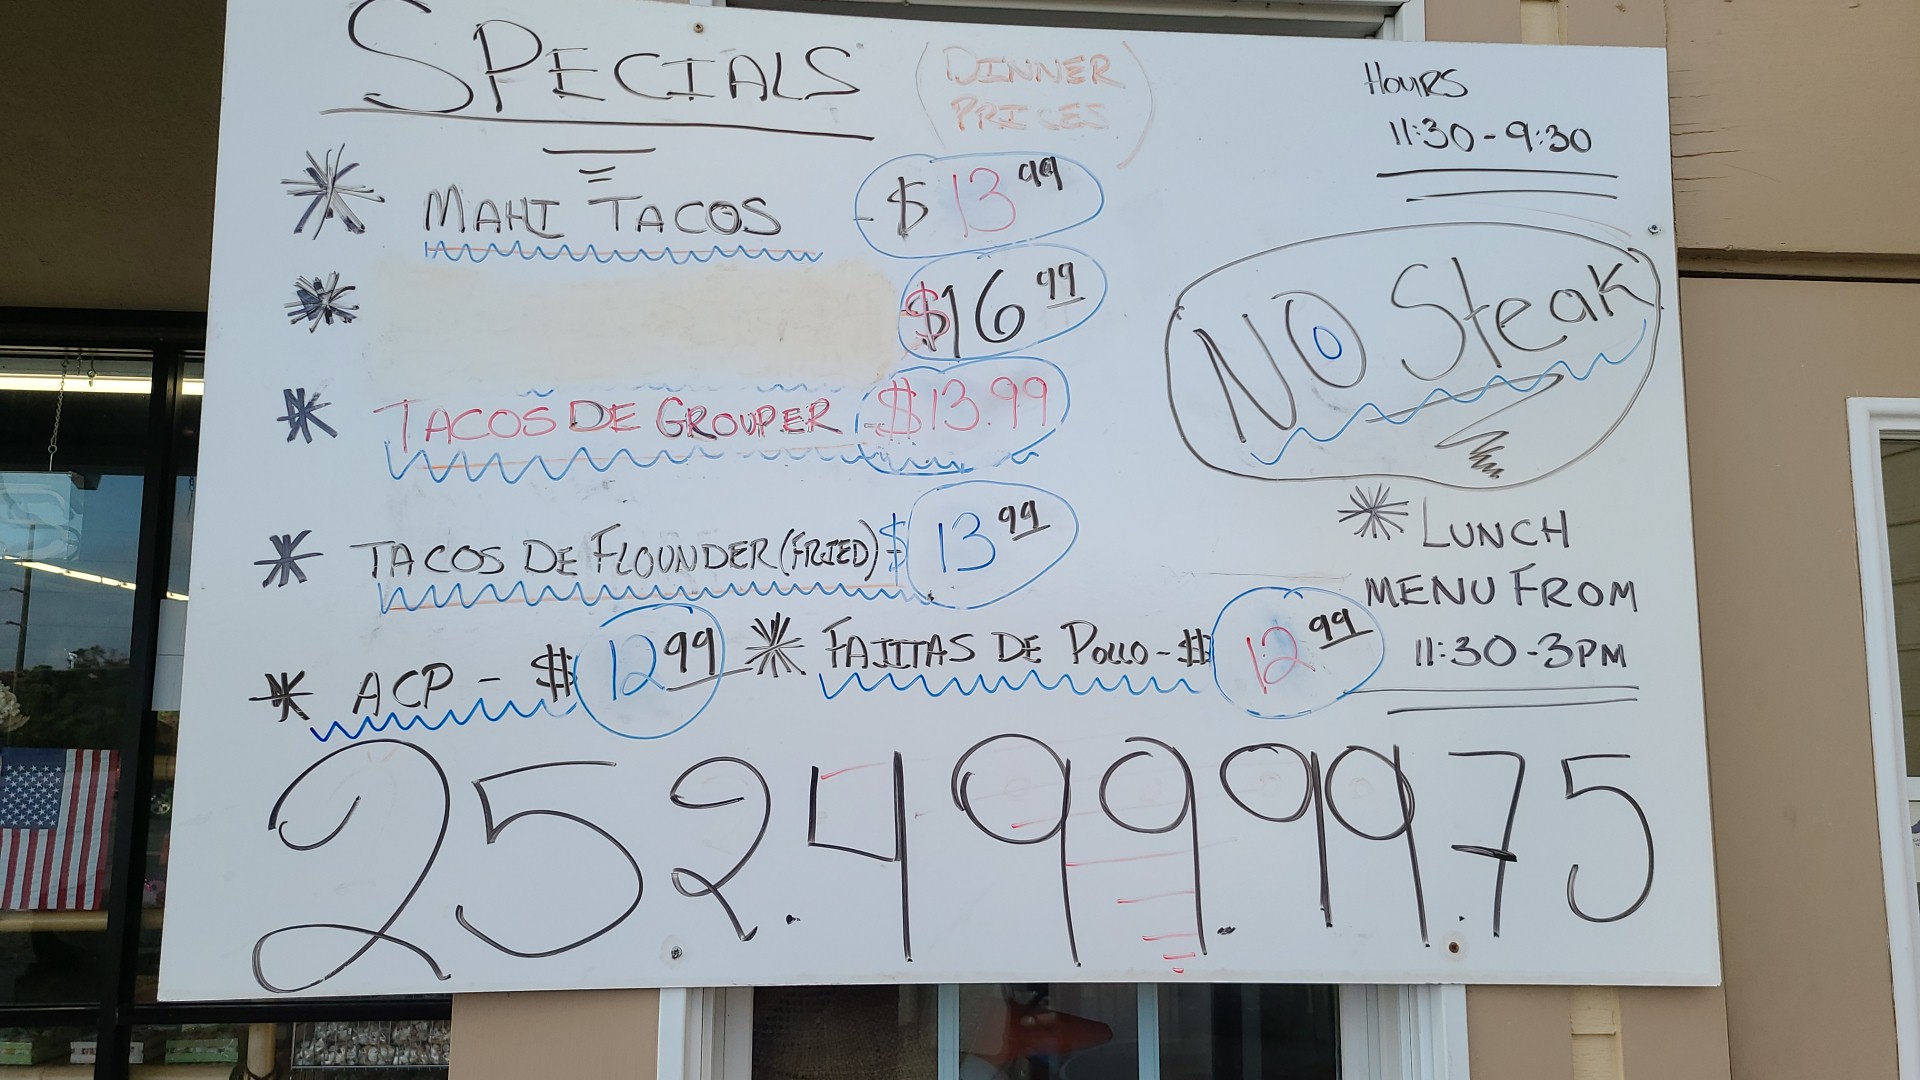 SPECIALS (DINNER PRICES)
HOURS
11:30-9:30
* MAHI TACOS - $13.99
* $16.99
* TACOS DE GROUPER - $13.99
NO Steak
* TACOS DE FLOUNDER (FRIED) - $13.99
* ACP - $12.99
* FAJITAS DE POLLO - $12.99
* LUNCH
MENU FROM
11:30-3PM
252.499.9975